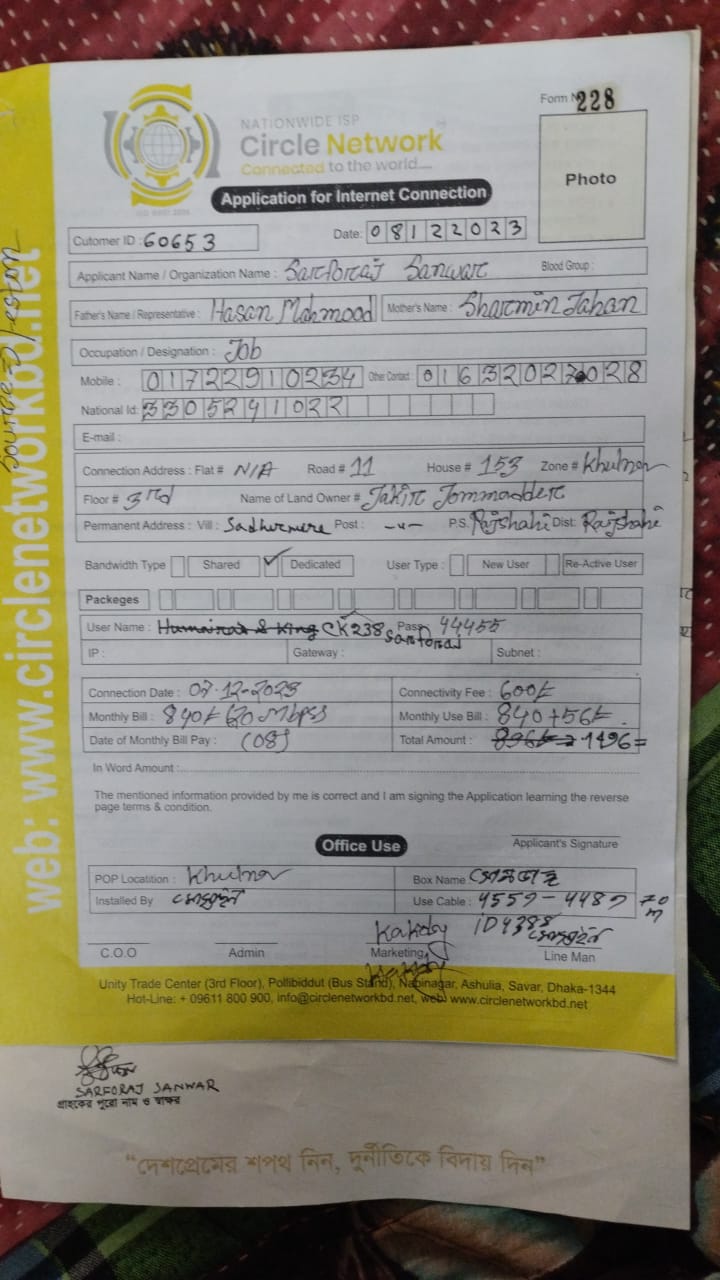 Form N 228
NATIONWIDE ISP
Circle Network
Connected to the world....
Application for Internet Connection
Photo
Cutomer ID : 60653
Date: 08122023
Applicant Name / Organization Name : Sarforaj Sanwar Blood Group :
Father's Name / Representative : Hasan Mahmood Mother's Name : Sharmin Jahan
Occupation / Designation : Job
Mobile : 01722910234 Other Contact : 01632027028
National Id: 3305241022
E-mail :
Connection Address : Flat # N/A Road # 11 House # 153 Zone # Khulna
Floor # 3rd Name of Land Owner # Jakir Jommadder
Permanent Address : Vill : Post : P.S. Rajshahi Dist: Rajshahi
Bandwidth Type Shared ✓ Dedicated User Type : New User Re-Active User
Packeges
User Name : CK238 Sarforaj Pass 44455
IP : Gateway : Subnet :
Connection Date : 07-12-2023 Connectivity Fee : 600/-
Monthly Bill : 840/- (20 Mbps) Monthly Use Bill : 840+56/-
Date of Monthly Bill Pay : (08) Total Amount : 896/- 1496=
In Word Amount :
The mentioned information provided by me is correct and I am signing the Application learning the reverse
page terms & condition.
Applicant's Signature
Office Use
POP Locatition : Khulna Box Name
Installed By Use Cable : 4559 - 4489 70 m
Kakoly ID4388
C.O.O Admin Marketing Line Man
Unity Trade Center (3rd Floor), Pollibiddut (Bus Stand), Nabinagar, Ashulia, Savar, Dhaka-1344
Hot-Line: + 09611 800 900, info@circlenetworkbd.net, web: www.circlenetworkbd.net
web: www.circlenetworkbd.net
SARFORAJ SANWAR
গ্রাহকের পুরো নাম ও স্বাক্ষর
“দেশপ্রেমের শপথ নিন, দুর্নীতিকে বিদায় দিন”